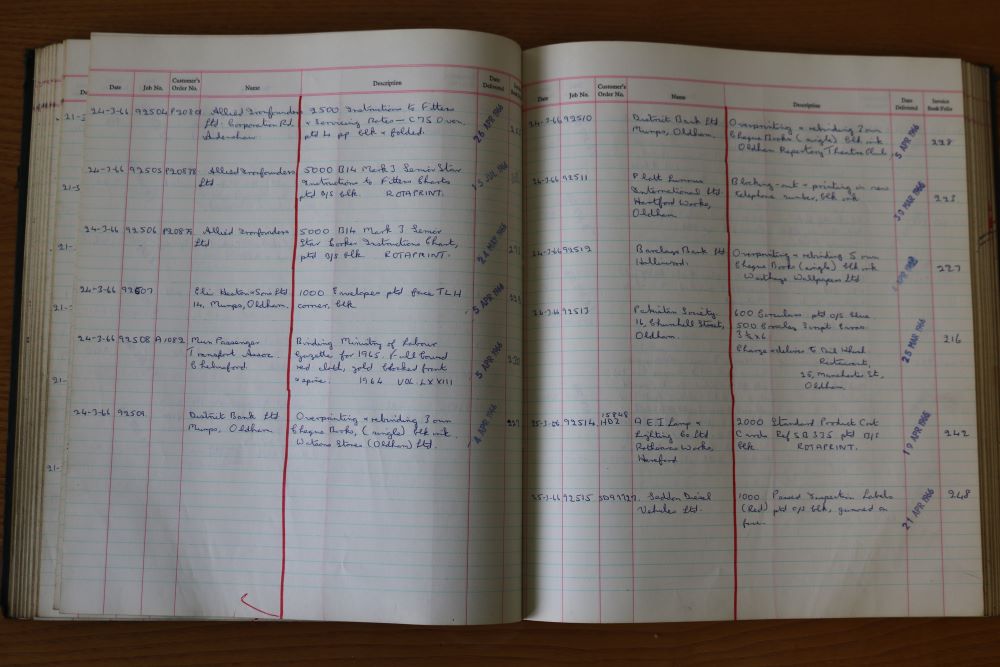 Date Job No. Customer's Order No. Name Description Date Delivered
24-3-66 92504 P20809 Allied Ironfounders 2500 Instructions to Fitters
Ltd. Corporation Rd. & Servicing Notes - C75 Oven,
Audenshaw. ptd 4 pp blk & folded.
26 APR 1966
24-3-66 92505 P20878 Allied Ironfounders 5000 B14 Mark 3 Senior Star
Ltd Instructions to Fitters Charts
ptd o/s blk. ROTAPRINT.
15 JUL 1966
24-3-66 92506 P20879 Allied Ironfounders 5000 B14 Mark 3 Senior
Ltd Star Cooker Instructions Chart,
ptd o/s blk. ROTAPRINT.
24 MAY 1966
24-3-66 92507 Elis Heaton & Sons Ltd 1000 Envelopes ptd face TLH
14, Mumps, Oldham. corner, blk
5 APR 1966
24-3-66 92508 A 1082 Mun Passenger Binding Ministry of Labour
Transport Assoc. Gazette for 1965. Full bound
Chelmsford. red cloth, gold blocked front
& spine. 1964 VOL. LXXIII
5 APR 1966 230
24-3-66 92509 District Bank Ltd Overprinting & rebinding 3 own
Mumps, Oldham Cheque Books, (single) blk ink
Watsons Stores (Oldham) Ltd.
4 APR 1966 227
Date Job No. Customer's Order No. Name Description Date Delivered Invoice Book Folio
24-3-66 92510 District Bank Ltd Overprinting & rebinding 2 own
Mumps, Oldham. Cheque Books (single) blk ink
Oldham Repertory Theatre Club
5 APR 1966 228
24-3-66 92511 Blocking-out & printing in new
International Ltd. telephone number, blk ink
Hartford Works,
Oldham.
30 MAR 1966 223
24-3-66 92512 Barclays Bank Ltd Overprinting & rebinding 5 own
Hollinwood. Cheque Books (single) blk ink
Wallpapers Ltd
APR 1966 227
24-3-66 92513 Pakistan Society 600 Circulars ptd o/s blue
16, Churchill Street, 500
Oldham. 3½ x 6
Charge & deliver to
Restaurant,
25, Manchester St,
Oldham.
25 MAR 1966 216
25-3-66 92514 15848 HD2 A.E.I Lamp & 2000 Standard Product Cost
Lighting Co Ltd Cards Ref SB 335 ptd o/s
Rotherwas Works, blk. ROTAPRINT.
Hereford
19 APR 1966 242
25-3-66 92515 SD97727 Seddon Diesel 1000 Passed Inspection Labels
Vehicles Ltd. (Red) ptd o/s blk, gummed on
face.
21 APR 1966 248